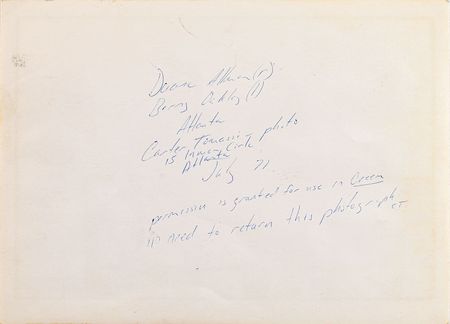 Duane Allman (r)
Berry Oakley (l)
Atlanta
Carter Tomassi photo
15 Inman Circle
Atlanta
July 71
permission is granted for use in Creem
no need to return this photograph
CT